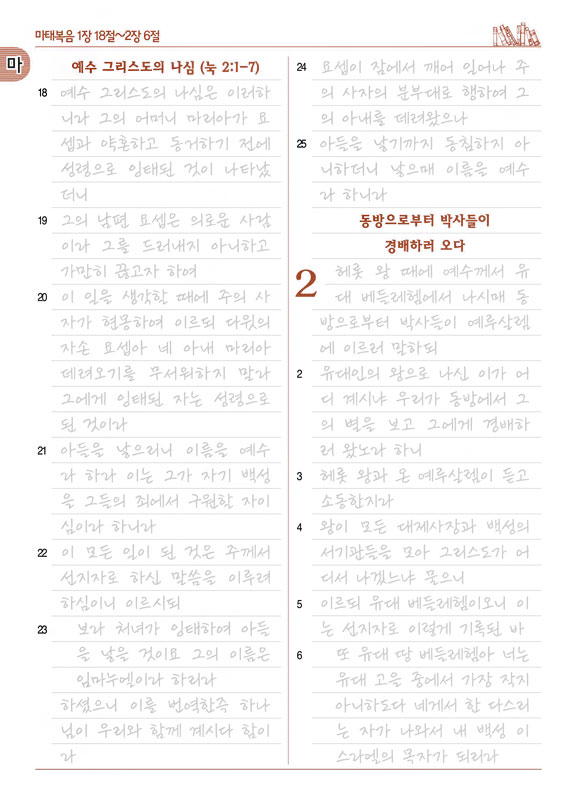 마태복음 1장 18절~2장 6절
마
예수 그리스도의 나심 (눅 2:1-7)
18 예수 그리스도의 나심은 이러하
니라 그의 어머니 마리아가 요
셉과 약혼하고 동거하기 전에
성령으로 잉태된 것이 나타났
더니
19 그의 남편 요셉은 의로운 사람
이라 그를 드러내지 아니하고
가만히 끊고자 하여
20 이 일을 생각할 때에 주의 사
자가 현몽하여 이르되 다윗의
자손 요셉아 네 아내 마리아
데려오기를 무서워하지 말라
그에게 잉태된 자는 성령으로
된 것이라
21 아들을 낳으리니 이름을 예수
라 하라 이는 그가 자기 백성
을 그들의 죄에서 구원할 자이
심이라 하니라
22 이 모든 일이 된 것은 주께서
선지자로 하신 말씀을 이루려
하심이니 이르시되
23 보라 처녀가 잉태하여 아들
을 낳을 것이요 그의 이름은
임마누엘이라 하리라
하셨으니 이를 번역한즉 하나
님이 우리와 함께 계시다 함이
라
24 요셉이 잠에서 깨어 일어나 주
의 사자의 분부대로 행하여 그
의 아내를 데려왔으나
25 아들을 낳기까지 동침하지 아
니하더니 낳으매 이름을 예수
라 하니라
동방으로부터 박사들이
경배하러 오다
2 헤롯 왕 때에 예수께서 유
대 베들레헴에서 나시매 동
방으로부터 박사들이 예루살렘
에 이르러 말하되
2 유대인의 왕으로 나신 이가 어
디 계시냐 우리가 동방에서 그
의 별을 보고 그에게 경배하
러 왔노라 하니
3 헤롯 왕과 온 예루살렘이 듣고
소동한지라
4 왕이 모든 대제사장과 백성의
서기관들을 모아 그리스도가 어
디서 나겠느냐 물으니
5 이르되 유대 베들레헴이오니 이
는 선지자로 이렇게 기록된 바
6 또 유대 땅 베들레헴아 너는
유대 고을 중에서 가장 작지
아니하도다 네게서 한 다스리
는 자가 나와서 내 백성 이
스라엘의 목자가 되리라